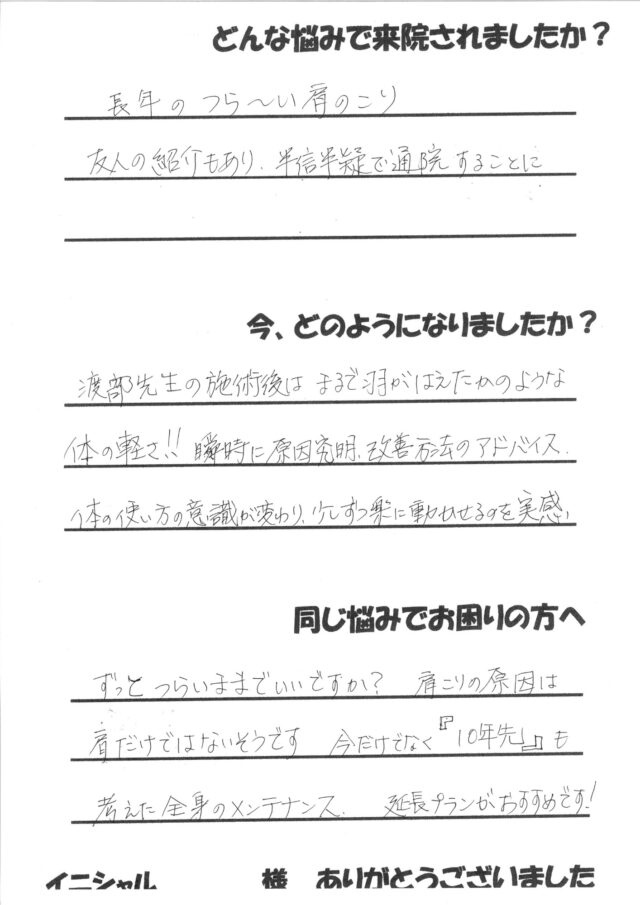 どんな悩みで来院されましたか？
長年のつら〜い肩のこり
友人の紹介もあり、半信半疑で通院することに
今、どのようになりましたか？
渡部先生の施術後は まるで羽がはえたかのような
体の軽さ!! 瞬時に原因究明、改善方法のアドバイス、
体の使い方の意識が変わり、少しずつ楽に動かせるのを実感、
同じ悩みでお困りの方へ
ずっとつらいままでいいですか？ 肩こりの原因は
肩だけではないそうです 今だけでなく『10年先』も
考えた全身のメンテナンス、 延長プランがおすすめです!
イニシャル 様 ありがとうございました